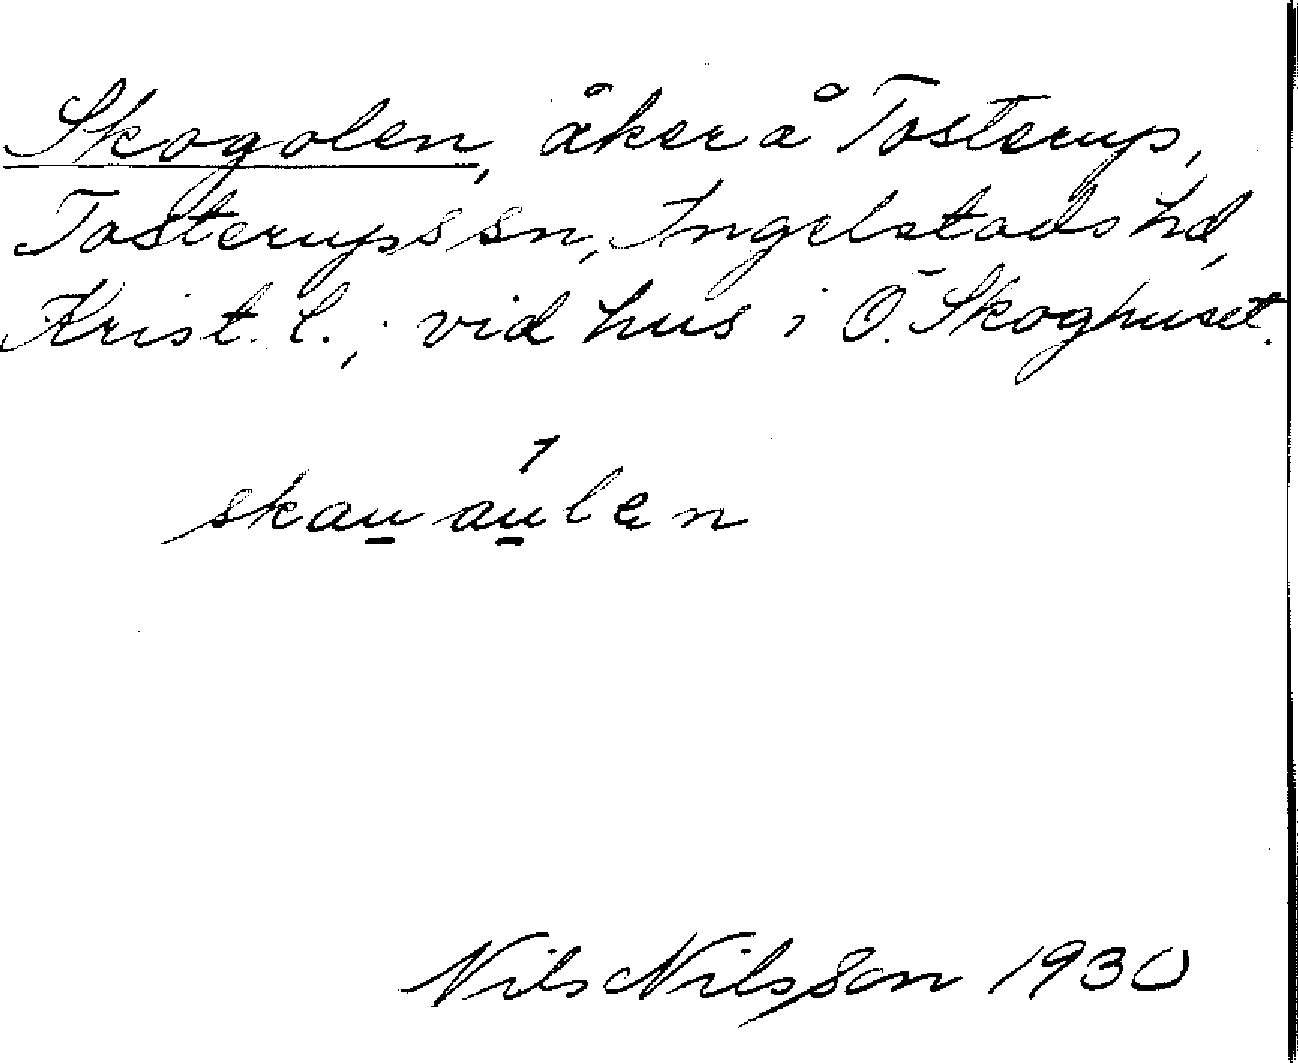 Skogolen, åker å Tosterup,
Tosterups sn, Ingelstads hd,
Krist. l.; vid hus i Ö. Skoghuset.
skau̱ áu̱len
Nils Nilsson 1930